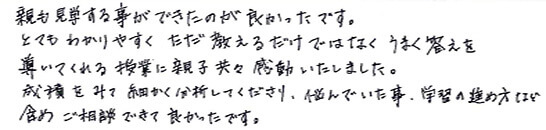 親も見学する事ができたのが良かったです。
とてもわかりやすく ただ教えるだけではなく うまく答えを
導いてくれる授業に親子共々感動いたしました。
成績をみて細かく分析してくださり、悩んでいた事、学習の進め方など
含め ご相談できて良かったです。